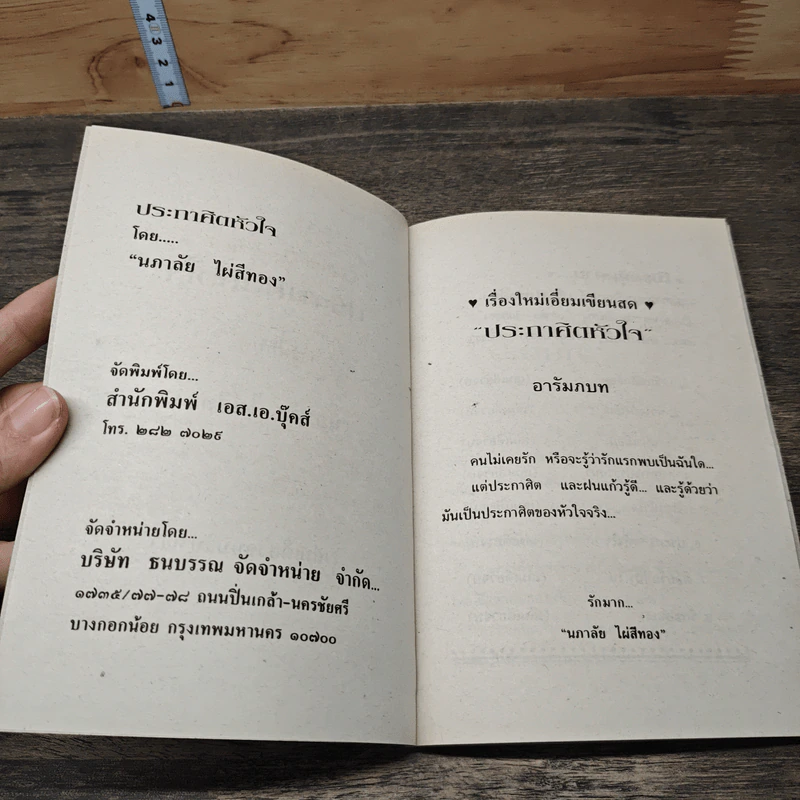 4
3
2
1
ประกาศิตหัวใจ
โดย.....
“นภาลัย ไผ่สีทอง”
จัดพิมพ์โดย...
สำนักพิมพ์ เอส.เอ.บุ๊คส์
โทร. ๒๘๒ ๗๐๒๙
จัดจำหน่ายโดย...
บริษัท ธนบรรณ จัดจำหน่าย จำกัด...
๑๗๓๕/๗๗-๗๘ ถนนปิ่นเกล้า-นครชัยศรี
บางกอกน้อย กรุงเทพมหานคร ๑๐๗๐๐
♥ เรื่องใหม่เอี่ยมเขียนสด ♥
“ประกาศิตหัวใจ”
อารัมภบท
คนไม่เคยรัก หรือจะรู้ว่ารักแรกพบเป็นฉันใด...
แต่ประกาศิต และฝนแก้วรู้ดี... และรู้ด้วยว่า
มันเป็นประกาศิตของหัวใจจริง...
รักมาก...
“นภาลัย ไผ่สีทอง”